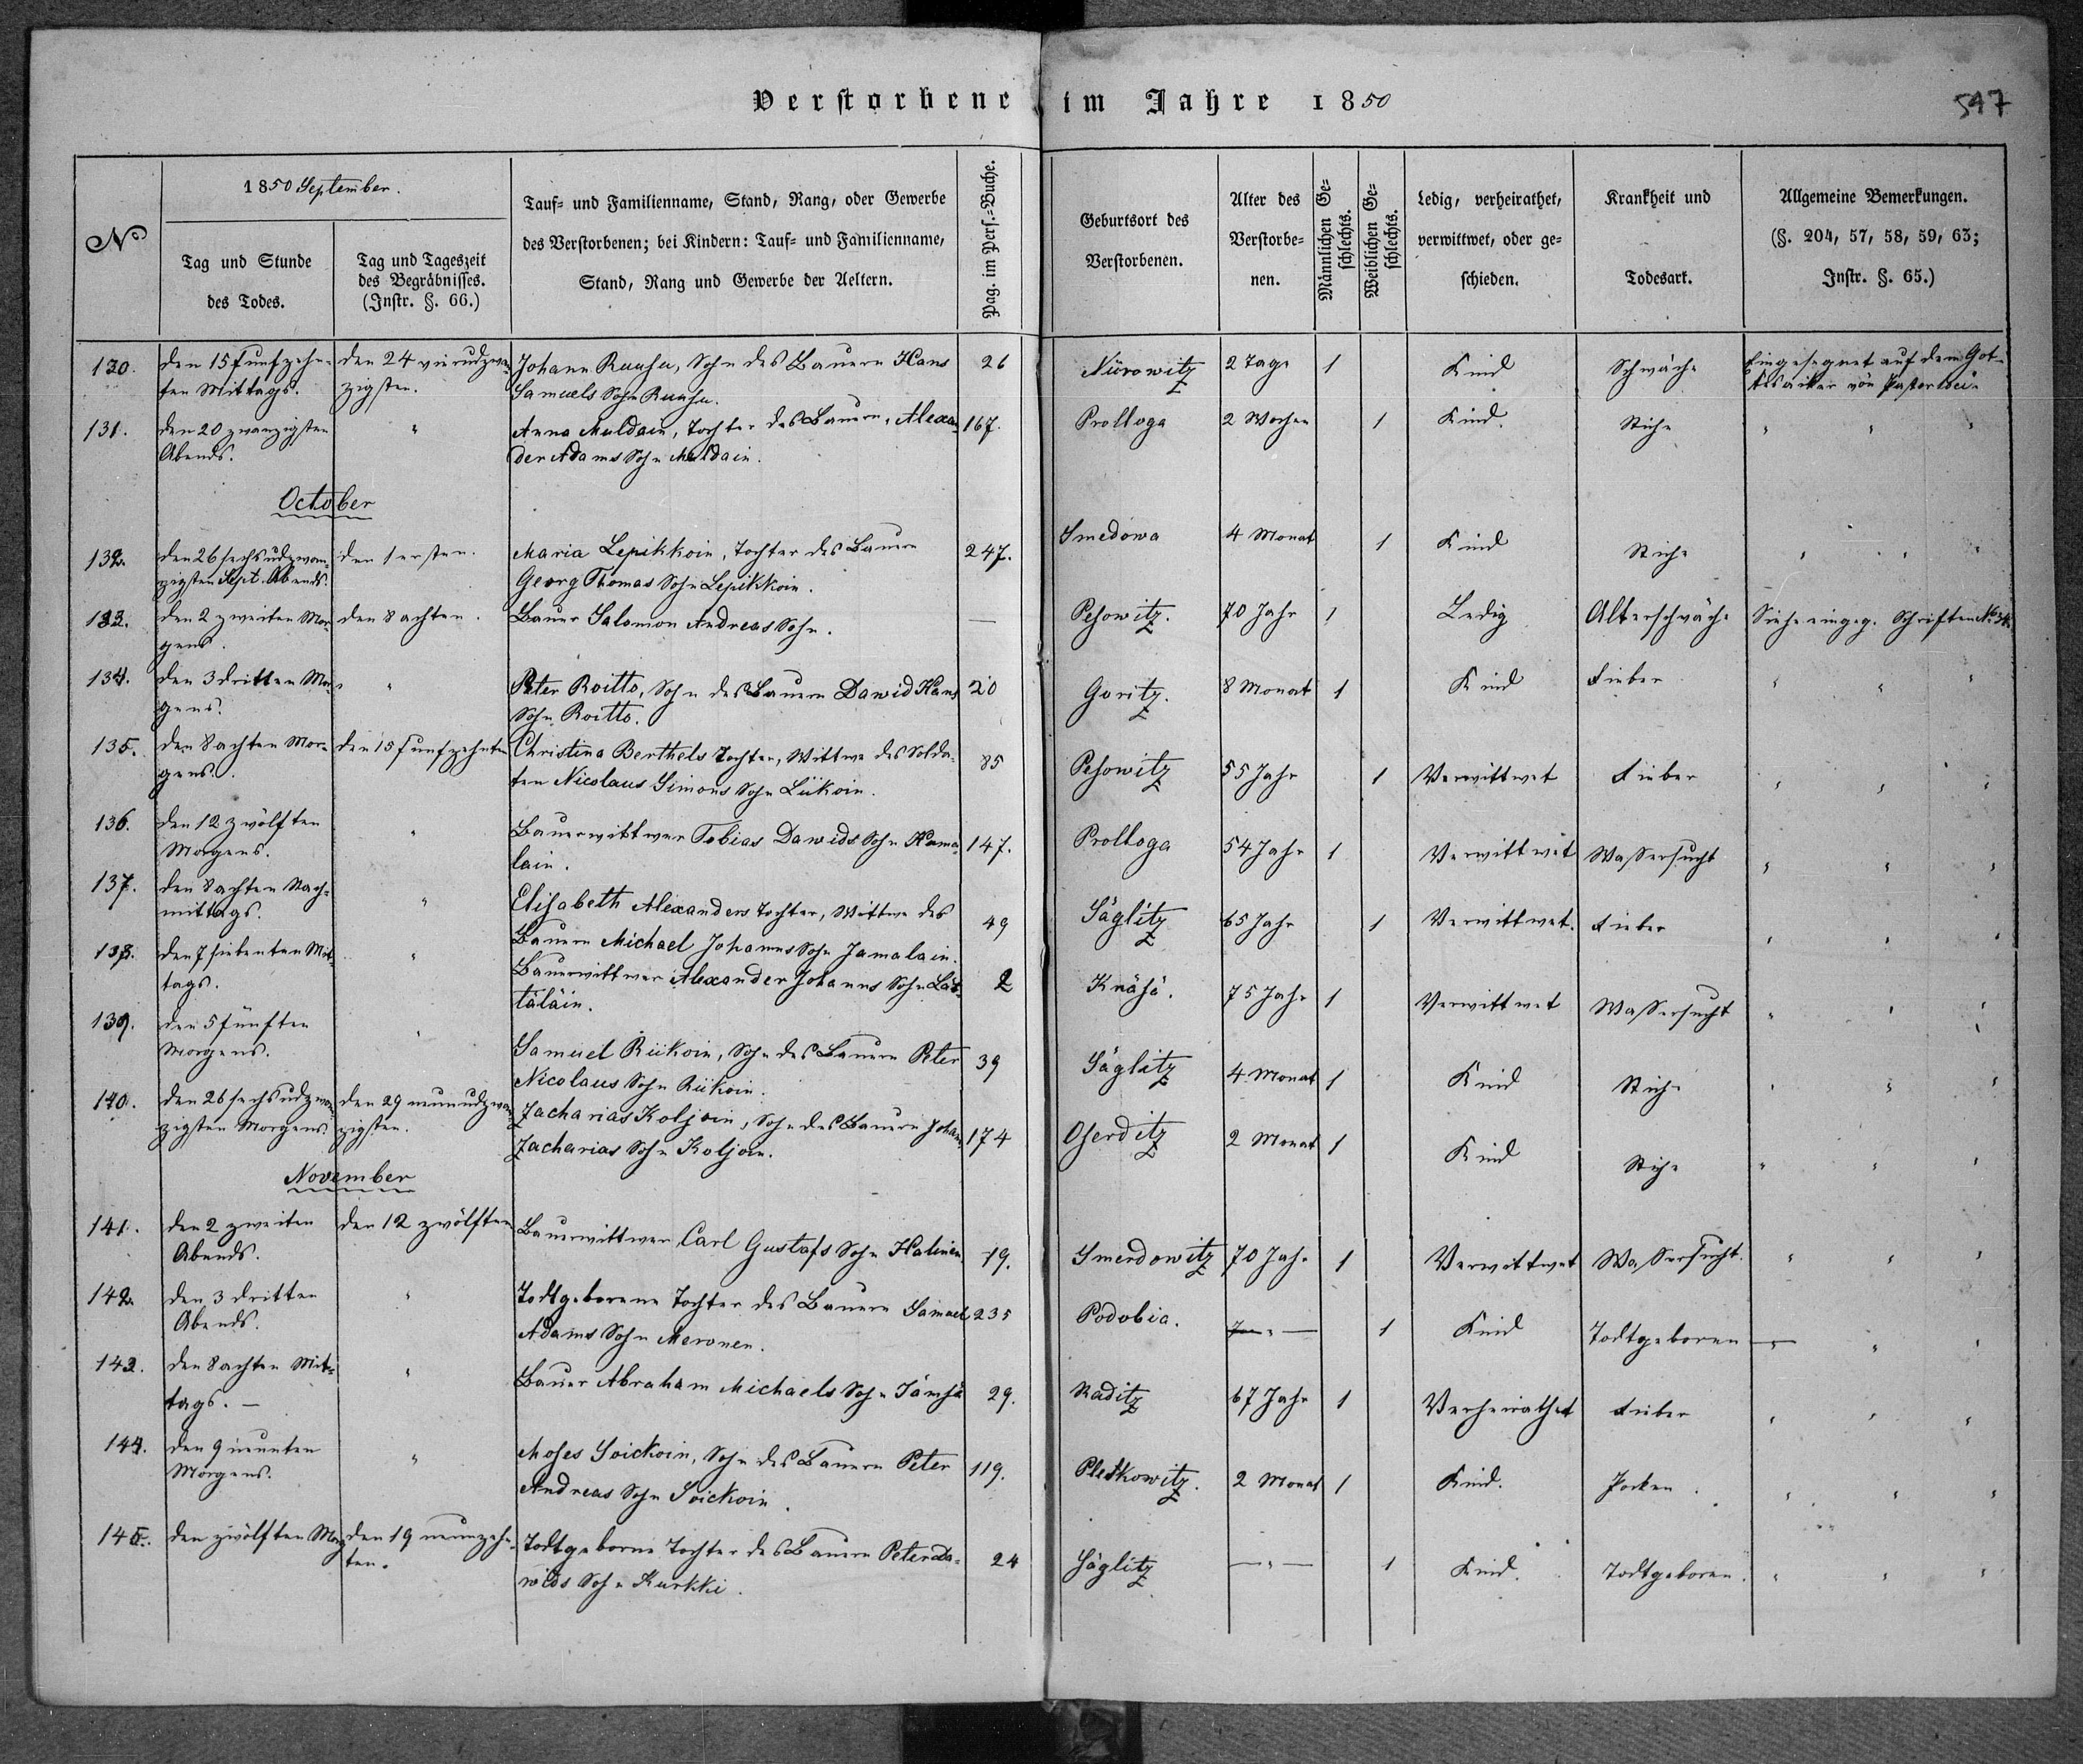 Verstorbene im Jahre 1850
547
No
1850 September.
Tag und Stunde
des Todes.
Tag und Tageszeit
des Begräbnisses.
(Instr. §. 66.)
Tauf- und Familienname, Stand, Rang, oder Gewerbe
des Verstorbenen; bei Kindern: Tauf- und Familienname,
Stand, Rang und Gewerbe der Aeltern.
Pag. im Pers.-Buche.
Geburtsort des
Verstorbenen.
Alter des
Verstorbe-
nen.
Männlichen Ge-
schlechts.
Weiblichen Ge-
schlechts.
Ledig, verheirathet,
verwittwet, oder ge-
schieden.
Krankheit und
Todesart.
Allgemeine Bemerkungen.
(§. 204, 57, 58, 59, 63;
Instr. §. 65.)
130. den 15 funfzehn- den 24 vierudzwan- Johann Ruuhu, Sohn des Bauern Hans 26 Nürowitz 2 Tage 1 Kind Schwäche Eingesegnet auf dem Got-
ten Mittags. zigsten. Samuels Sohn Ruuhu. von
131. den 20 zwanzigsten " Anna Muldain, Tochter des Bauern Alexan- 167. Prolloga 2 Wochen 1 Kind. Stiche " " "
Abends. der Adams Sohn Muldain.
October
132. den 26 sechsudzwan- den 1 ersten. Maria Lepikkoin, Tochter des Bauern 247. Smedowa 4 Monat 1 Kind Stiche " " "
zigsten Sept. Abends. Georg Thomas Sohn Lepikkoin.
133. den 2 zweiten Mor- den 8 achten. Bauer Salomon Andreas Sohn. — Pehowitz. 70 Jahr 1 Ledig Alterschwäche Siehe eingeg. Schriften No 34.
gens.
134. den 3 dritten Mor- " Peter Roitto, Sohn des Bauern Dawid Hans 20 Goritz. 8 Monat 1 Kind Fieber " " "
gens. Sohn Roitto.
135. den 8 achten Mor- den 15 funfzehnten Christina Berthels Tochter, Wittwe des Solda- 85 Pehowitz 55 Jahr 1 Verwittwet Fieber " " "
gens. ten Nicolaus Simons Sohn Liikoin.
136. den 12 zwölften " Bauerwittwer Tobias Dawids Sohn Hama- 147. Prolloga 54 Jahr 1 Verwittwet Wassersucht " " "
Morgens. lain.
137. den 8 achten Nach- " Elisabeth Alexanders Tochter, Wittwe des 49 Säglitz 65 Jahr 1 Verwittwet. Fieber " " "
mittags. Bauern Michael Johanns Sohn Jamalain.
138. den 7 siebenten Mit- " Bauerwittwer Alexander Johanns Sohn Lät- 2 Knäsä. 75 Jahr 1 Verwittwet Wassersucht " " "
tags. täläin.
139. den 5 fünften " Samuel Riikoin, Sohn des Bauern Peter 39 Säglitz 4 Monat 1 Kind Stiche " " "
Morgens. Nicolaus Sohn Riikoin.
140. den 26 sechsudzwan- den 29 neunudzwan- Zacharias Koljoin, Sohn des Bauern Johann 174 Oserditz 2 Monat 1 Kind Stiche " " "
zigsten Morgens. zigsten. Zacharias Sohn Koljoin.
November
141. den 2 zweiten den 12 zwölften Bauerwittwer Carl Gustafs Sohn Halinen 19. Smerdowitz 70 Jahr 1 Verwittwet Wassersucht. " " "
Abends.
142. den 3 dritten " Todtgeborene Tochter des Bauern Samuel 235 Podobia. — " — 1 Kind Todtgeboren " " "
Abends. Adams Sohn Meronen.
143. den 8 achten Mit- " Bauer Abraham Michaels Sohn Jämsä 29. Raditz 67 Jahr 1 Verheirathet Fieber " " "
tags. —
144. den 9 neunten " Moses Soickoin, Sohn des Bauern Peter 119. Pletkowitz. 2 Monat 1 Kind. Pocken. " " "
Morgens. Andreas Sohn Soickoin.
145. den zwölften Morg. den 19 neunzehn- Todtgeborne Tochter des Bauern Peter Da- 24 Säglitz — " — 1 Kind. Todtgeboren. " " "
ten. wids Sohn Kurkki.